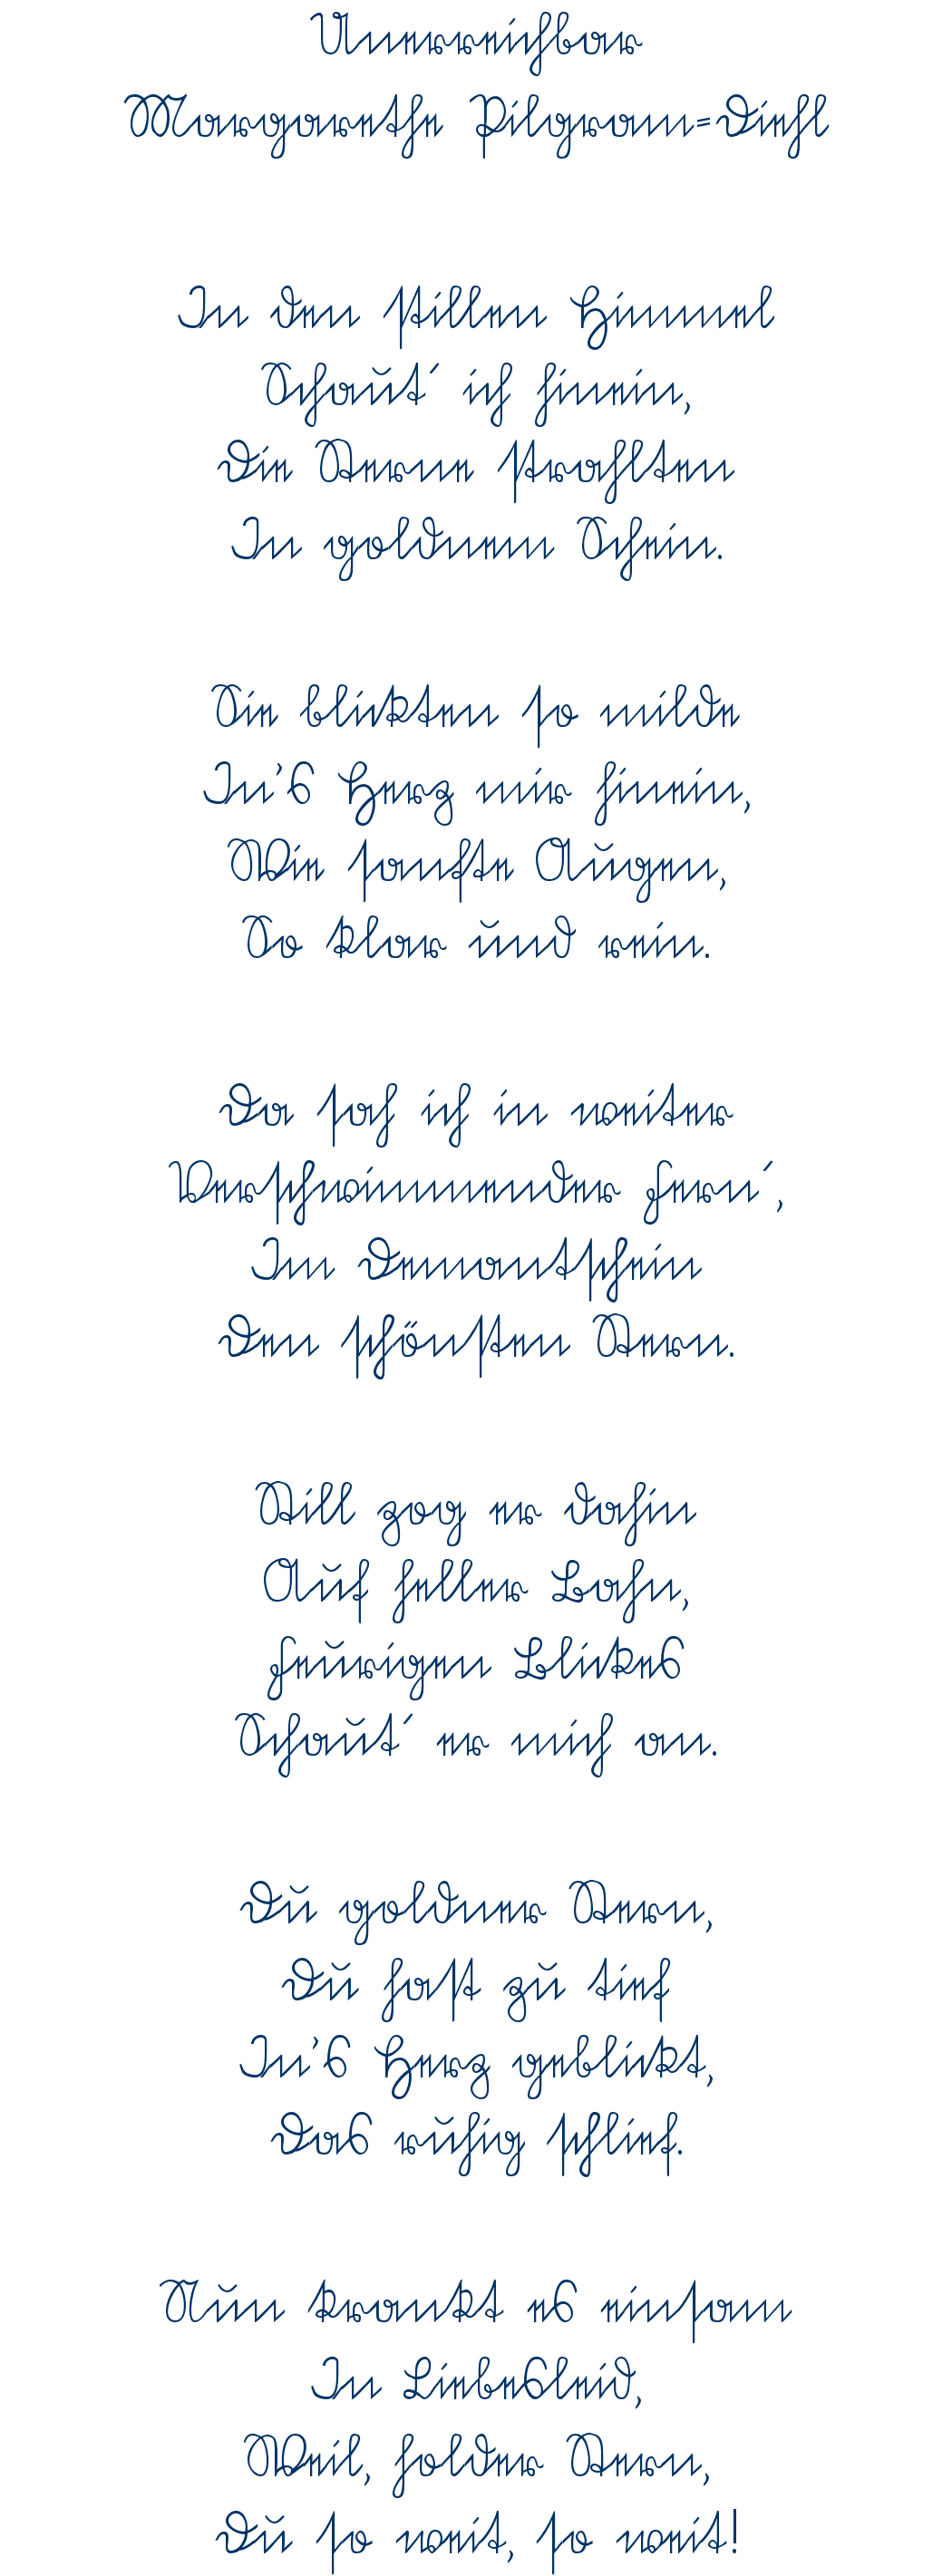 Unerreichbar
Margarethe Pilgram=Diehl
In den stillen Himmel
Schaut´ ich hinein,
Die Sterne strahlten
In goldnem Schein.
Sie blickten so milde
In's Herz mir hinein,
Wie sanfte Augen,
So klar und rein.
Da sah ich in weiter
Verschwimmender Fern´,
Im Demantschein
Den schönsten Stern.
Still zog er dahin
Auf heller Bahn,
Feurigen Blickes
Schaut´ er mich an.
Du goldner Stern,
Du hast zu tief
In's Herz geblickt,
Das ruhig schlief.
Nun krankt es einsam
In Liebesleid,
Weil, holder Stern,
Du so weit, so weit!